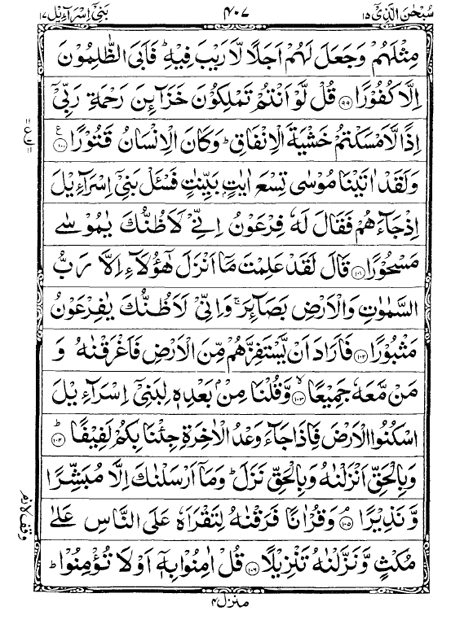 سُبْحٰنَ الَّذِیْۤ ۱۵
۴۰۷
بَنِیْۤ اِسْرَآءِیْل ۱۷
مِثْلَهُمْ وَجَعَلَ لَهُمْ اَجَلًا لَّا رَیْبَ فِیْهِ ؕ فَاَبَی الظّٰلِمُوْنَ
اِلَّا كُفُوْرًا ﴿۹۹﴾ قُلْ لَّوْ اَنْتُمْ تَمْلِكُوْنَ خَزَآىِٕنَ رَحْمَةِ رَبِّیْۤ
اِذًا لَّاَمْسَكْتُمْ خَشْیَةَ الْاِنْفَاقِ ؕ وَكَانَ الْاِنْسَانُ قَتُوْرًا ﴿۱۰۰﴾
وَلَقَدْ اٰتَیْنَا مُوْسٰی تِسْعَ اٰیٰتٍۭ بَیِّنٰتٍ فَسْـَٔلْ بَنِیْۤ اِسْرَآءِیْلَ
اِذْ جَآءَهُمْ فَقَالَ لَهٗ فِرْعَوْنُ اِنِّیْ لَاَظُنُّكَ یٰمُوْسٰی
مَسْحُوْرًا ﴿۱۰۱﴾ قَالَ لَقَدْ عَلِمْتَ مَاۤ اَنْزَلَ هٰۤؤُلَآءِ اِلَّا رَبُّ
السَّمٰوٰتِ وَالْاَرْضِ بَصَآىِٕرَ ۚ وَاِنِّیْ لَاَظُنُّكَ یٰفِرْعَوْنُ
مَثْبُوْرًا ﴿۱۰۲﴾ فَاَرَادَ اَنْ یَّسْتَفِزَّهُمْ مِّنَ الْاَرْضِ فَاَغْرَقْنٰهُ وَ
مَنْ مَّعَهٗ جَمِیْعًا ﴿۱۰۳﴾ۙ وَّقُلْنَا مِنْۢ بَعْدِهٖ لِبَنِیْۤ اِسْرَآءِیْلَ
اسْكُنُوا الْاَرْضَ فَاِذَا جَآءَ وَعْدُ الْاٰخِرَةِ جِئْنَا بِكُمْ لَفِیْفًا ﴿۱۰۴﴾ؕ
وَبِالْحَقِّ اَنْزَلْنٰهُ وَبِالْحَقِّ نَزَلَ ؕ وَمَاۤ اَرْسَلْنٰكَ اِلَّا مُبَشِّرًا
وَّنَذِیْرًا ﴿۱۰۵﴾ۘ وَقُرْاٰنًا فَرَقْنٰهُ لِتَقْرَاَهٗ عَلَی النَّاسِ عَلٰی
مُكْثٍ وَّنَزَّلْنٰهُ تَنْزِیْلًا ﴿۱۰۶﴾ قُلْ اٰمِنُوْا بِهٖۤ اَوْ لَا تُؤْمِنُوْا ؕ
وقف لازم
منزل ۴